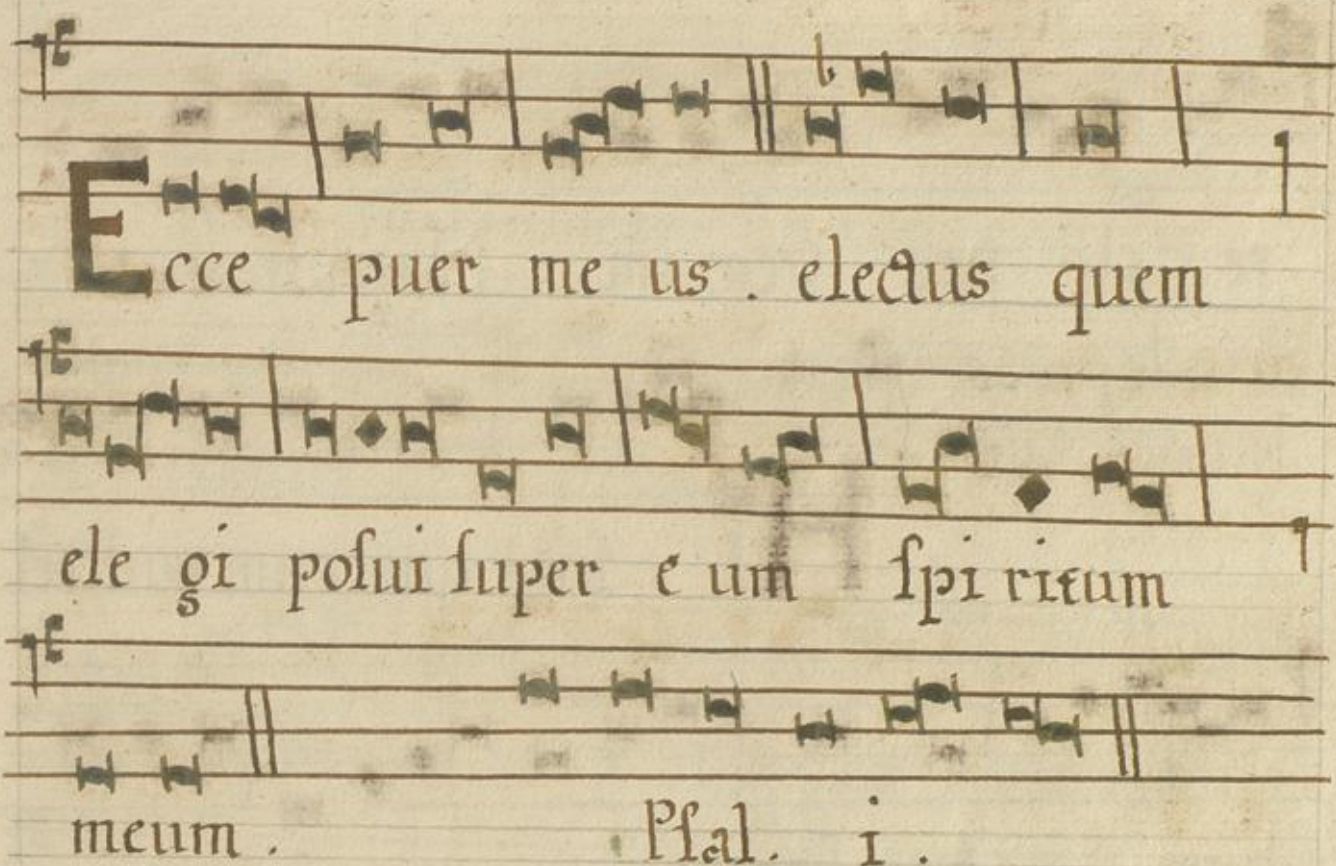 Ecce puer me us . electus quem
ele gi poſui ſuper e um ſpi ritum
meum . Pſal. i .